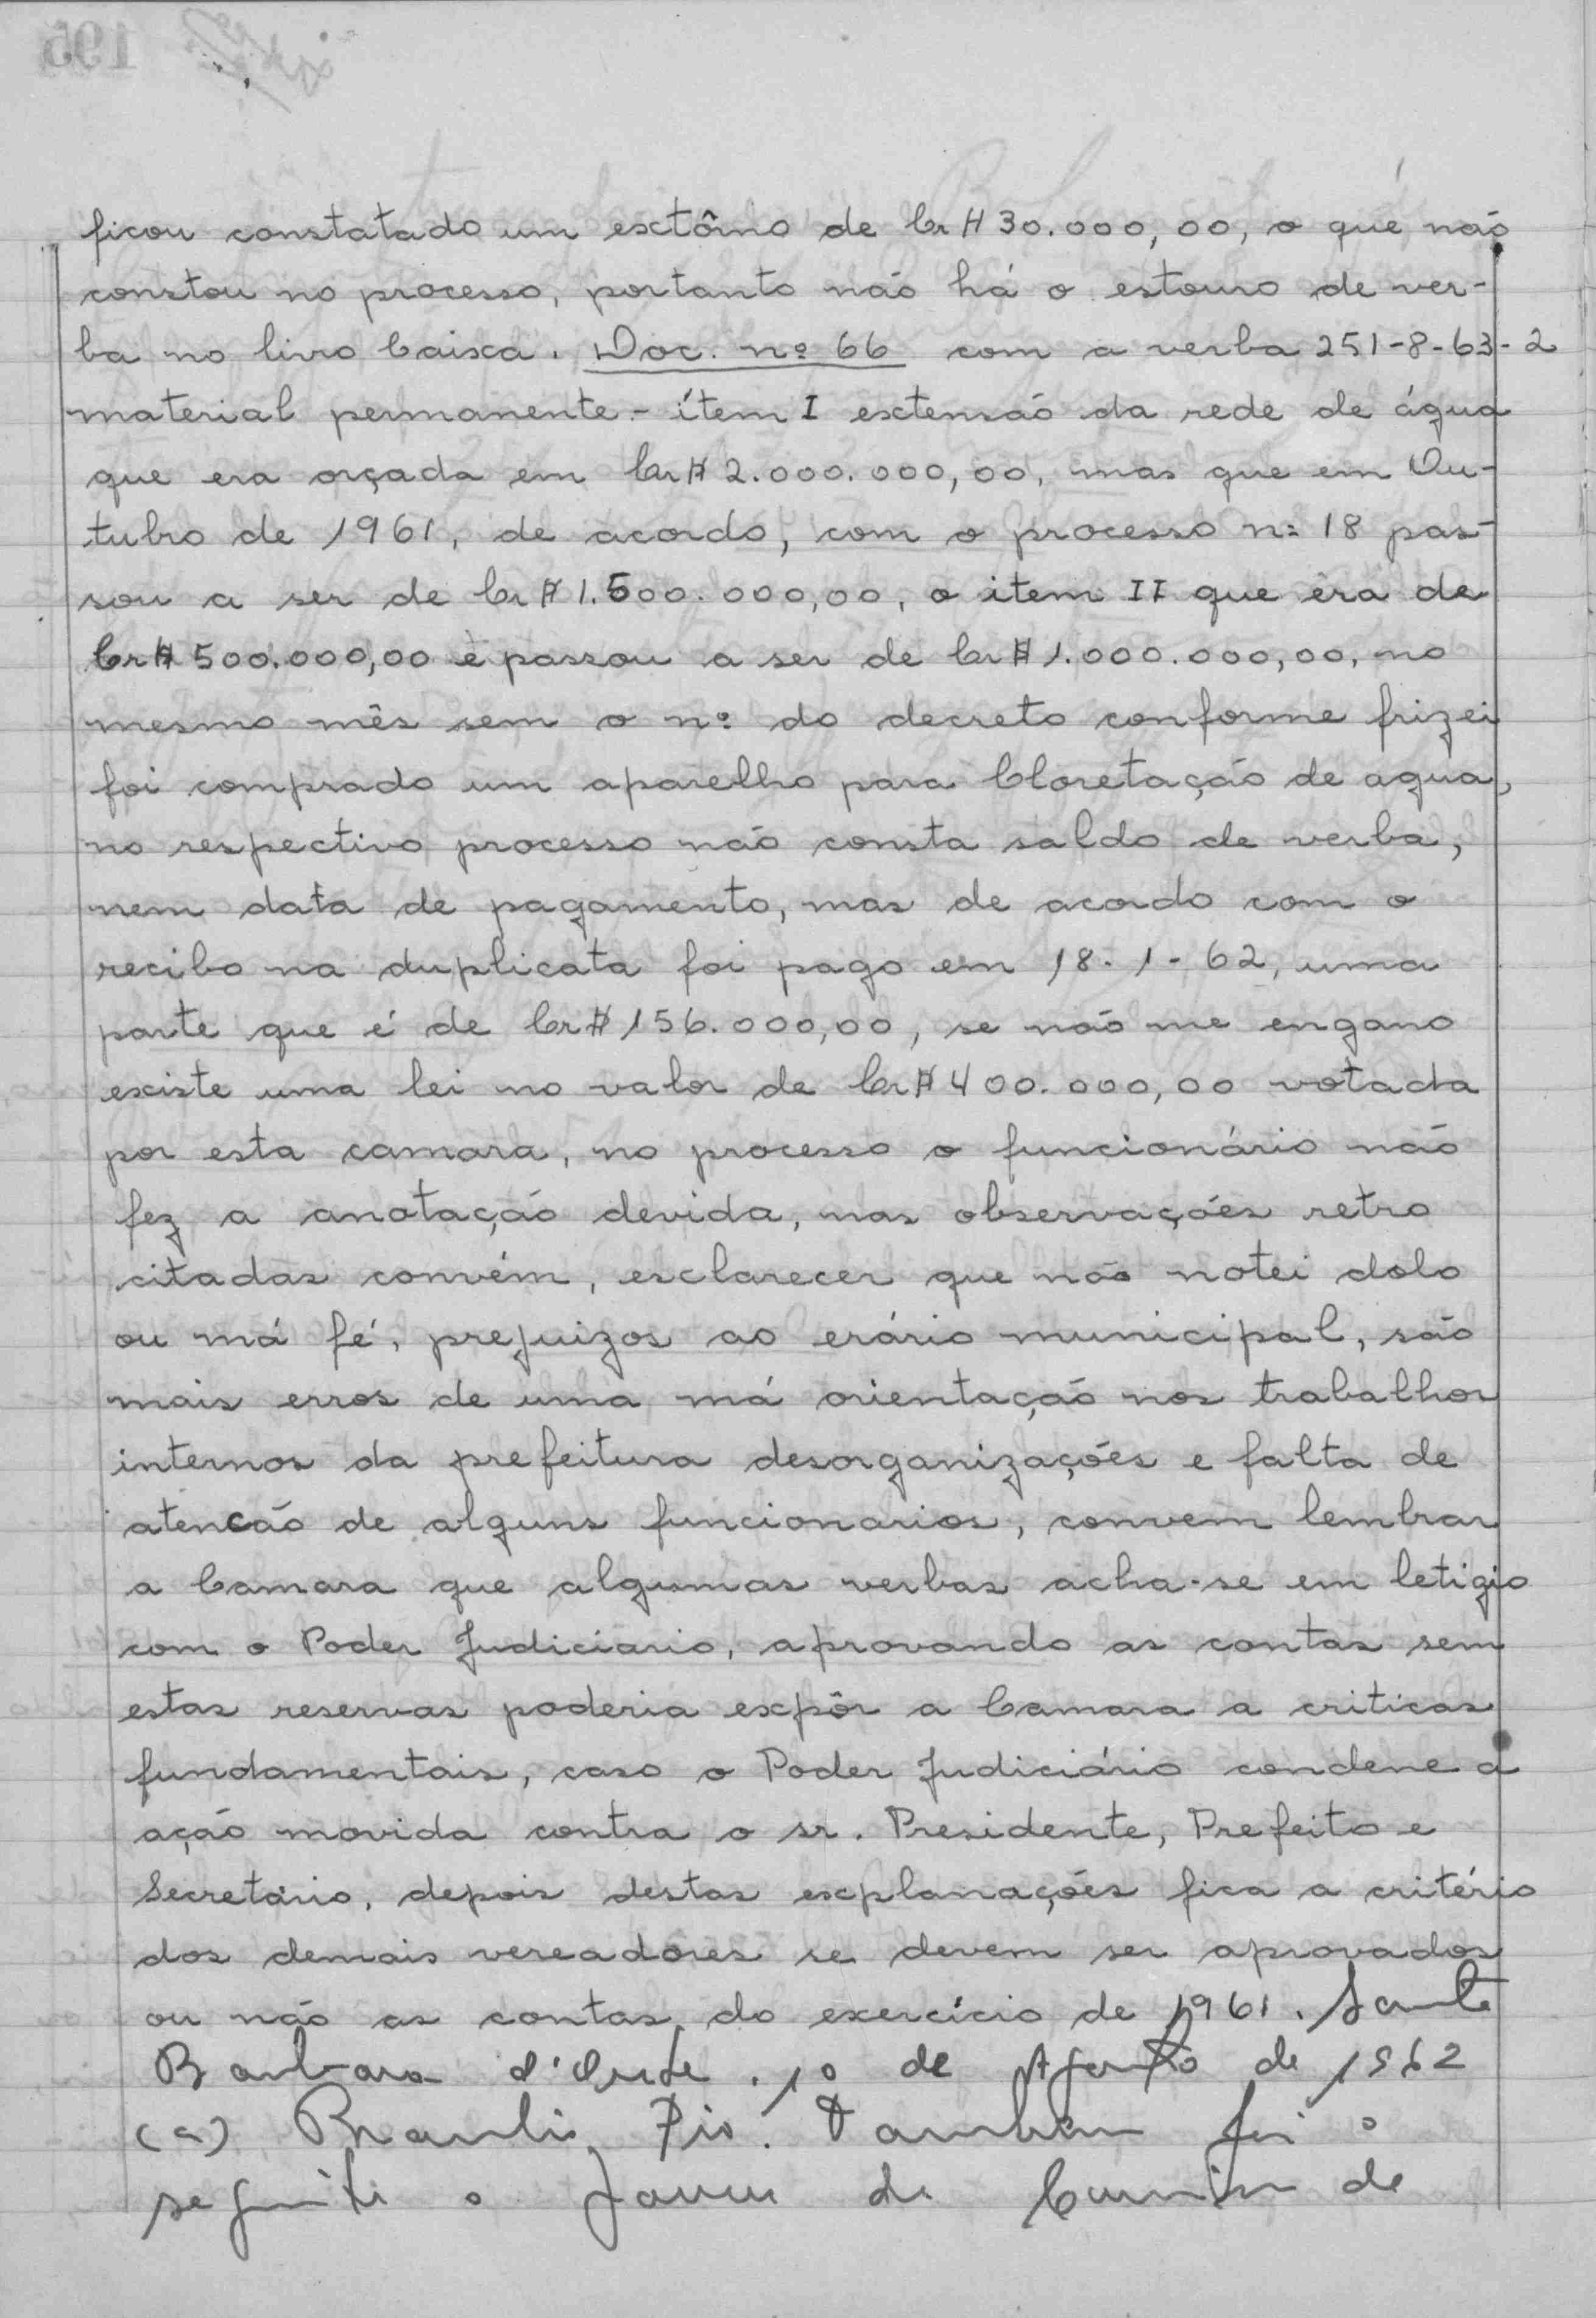 ficou constatado um extôrno de Cr$ 30.000,00, o que não
constou no processo, portanto não há o estouro de ver-
ba no livro Caixa. Doc. nº 66 com a verba 251-8-63-2
material permanente - ítem I extensão da rede de água
que era orçada em Cr$ 2.000.000,00, mas que em Ou-
tubro de 1961, de acordo, com o processo nº 18 pas-
sou a ser de Cr$ 1.500.000,00, o item II que era de
Cr$ 500.000,00 e passou a ser de Cr$ 1.000.000,00, no
mesmo mês sem o nº do decreto conforme frizei
foi comprado um aparelho para Cloretação de agua,
no respectivo processo não consta saldo de verba,
nem data de pagamento, mas de acordo com o
recibo na duplicata foi pago em 18-1-62, uma
parte que é de Cr$ 156.000,00, se não me engano
existe uma lei no valor de Cr$ 400.000,00 votada
por esta camara, no processo o funcionário não
fez a anotação devida, nas observações retro
citadas convém, esclarecer que não notei dolo
ou má fé, prejuizos ao erário municipal, são
mais erros de uma má orientação nos trabalhos
internos da prefeitura desorganizações e falta de
atencão de alguns funcionarios, convem lembrar
a Camara que algumas verbas acha-se em letigio
com o Poder Judiciario, aprovando as contas sem
estas reservas poderia expôr a Camara a criticas
fundamentais, caso o Poder Judiciário condene a
ação movida contra o sr. Presidente, Prefeito e
Secretário, depois destas explanações fica a critério
dos demais vereadores se devem ser aprovados
ou não as contas do exercício de 1961. Santa
Barbara d'Oeste, 10 de Agosto de 1962
(a) Braulio Pio. Tambem foi o
seguinte o da Comissão de